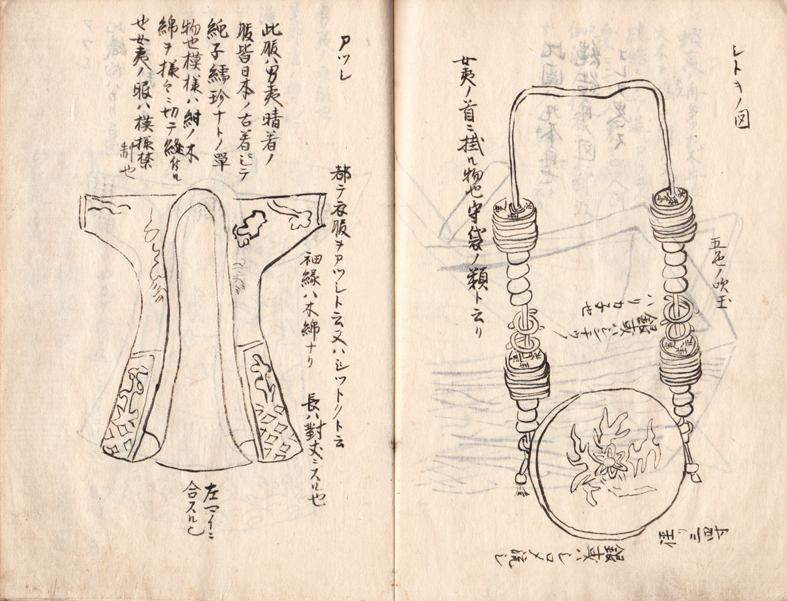 シトキノ図
五色ノ吹玉
女夷ノ首ニ掛ル物也守袋ノ類ト云り
銀或ハシンチウ
ハリカネ也
銀或ハシロメ流し
アツレ
此服ハ男夷晴着ノ
服皆日本ノ古着ニテ
純子繻珍ナトノ單
物也模様ハ紺ノ木
綿ヲ様々ニ切テ縫付ル
也女夷ノ服ハ模様禁
制也
都テ衣服ヲアツレト云又ハシツトリト云
袖縁ハ木綿ナリ
長ハ對丈ニスル也
左マイニ
合スル也